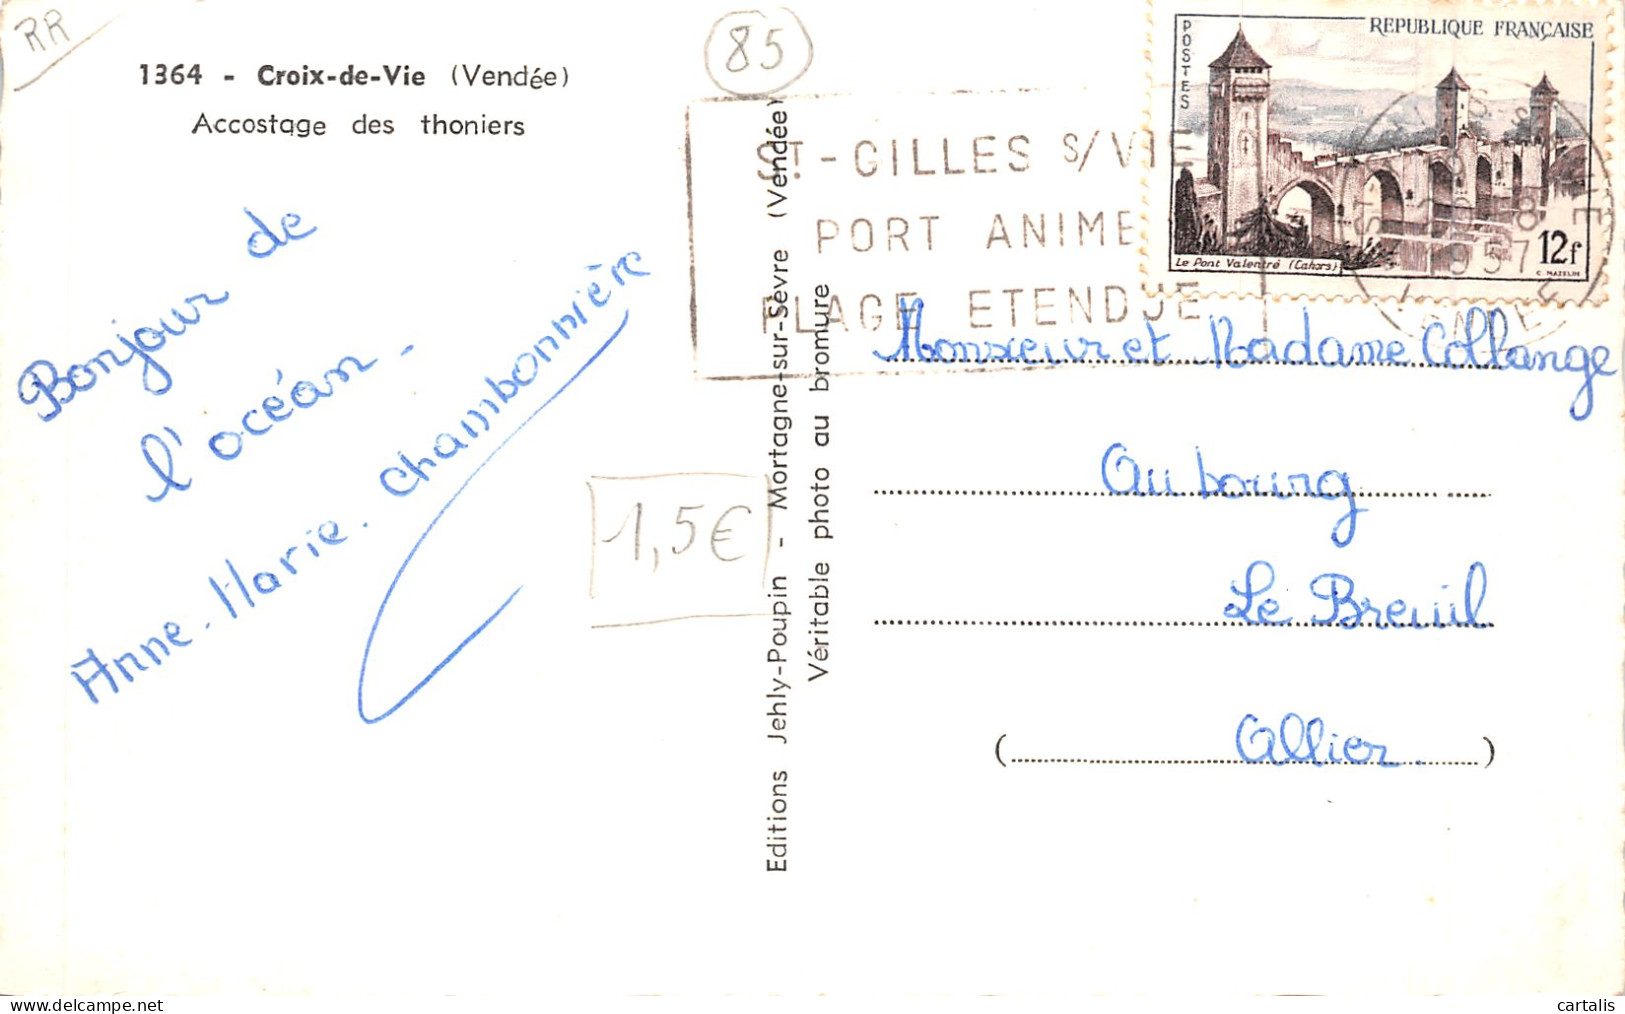 RR
85
1364 - Croix-de-Vie (Vendée)
Accostage des thoniers
Bonjour de
l'océan -
Anne-Marie. Chambonnière
1,5€
Editions Jehly-Poupin - Mortagne-sur-Sèvre (Vendée)
Véritable photo au bromure
ST-GILLES S/VIE
PORT ANIME
PLAGE ETENDUE
POSTES
REPUBLIQUE FRANÇAISE
Le Pont Valentré (Cahors)
12f
C. MAZELIN
1957
Monsieur et Madame Collange
Au bourg
Le Breuil
(Allier.)
cartalis